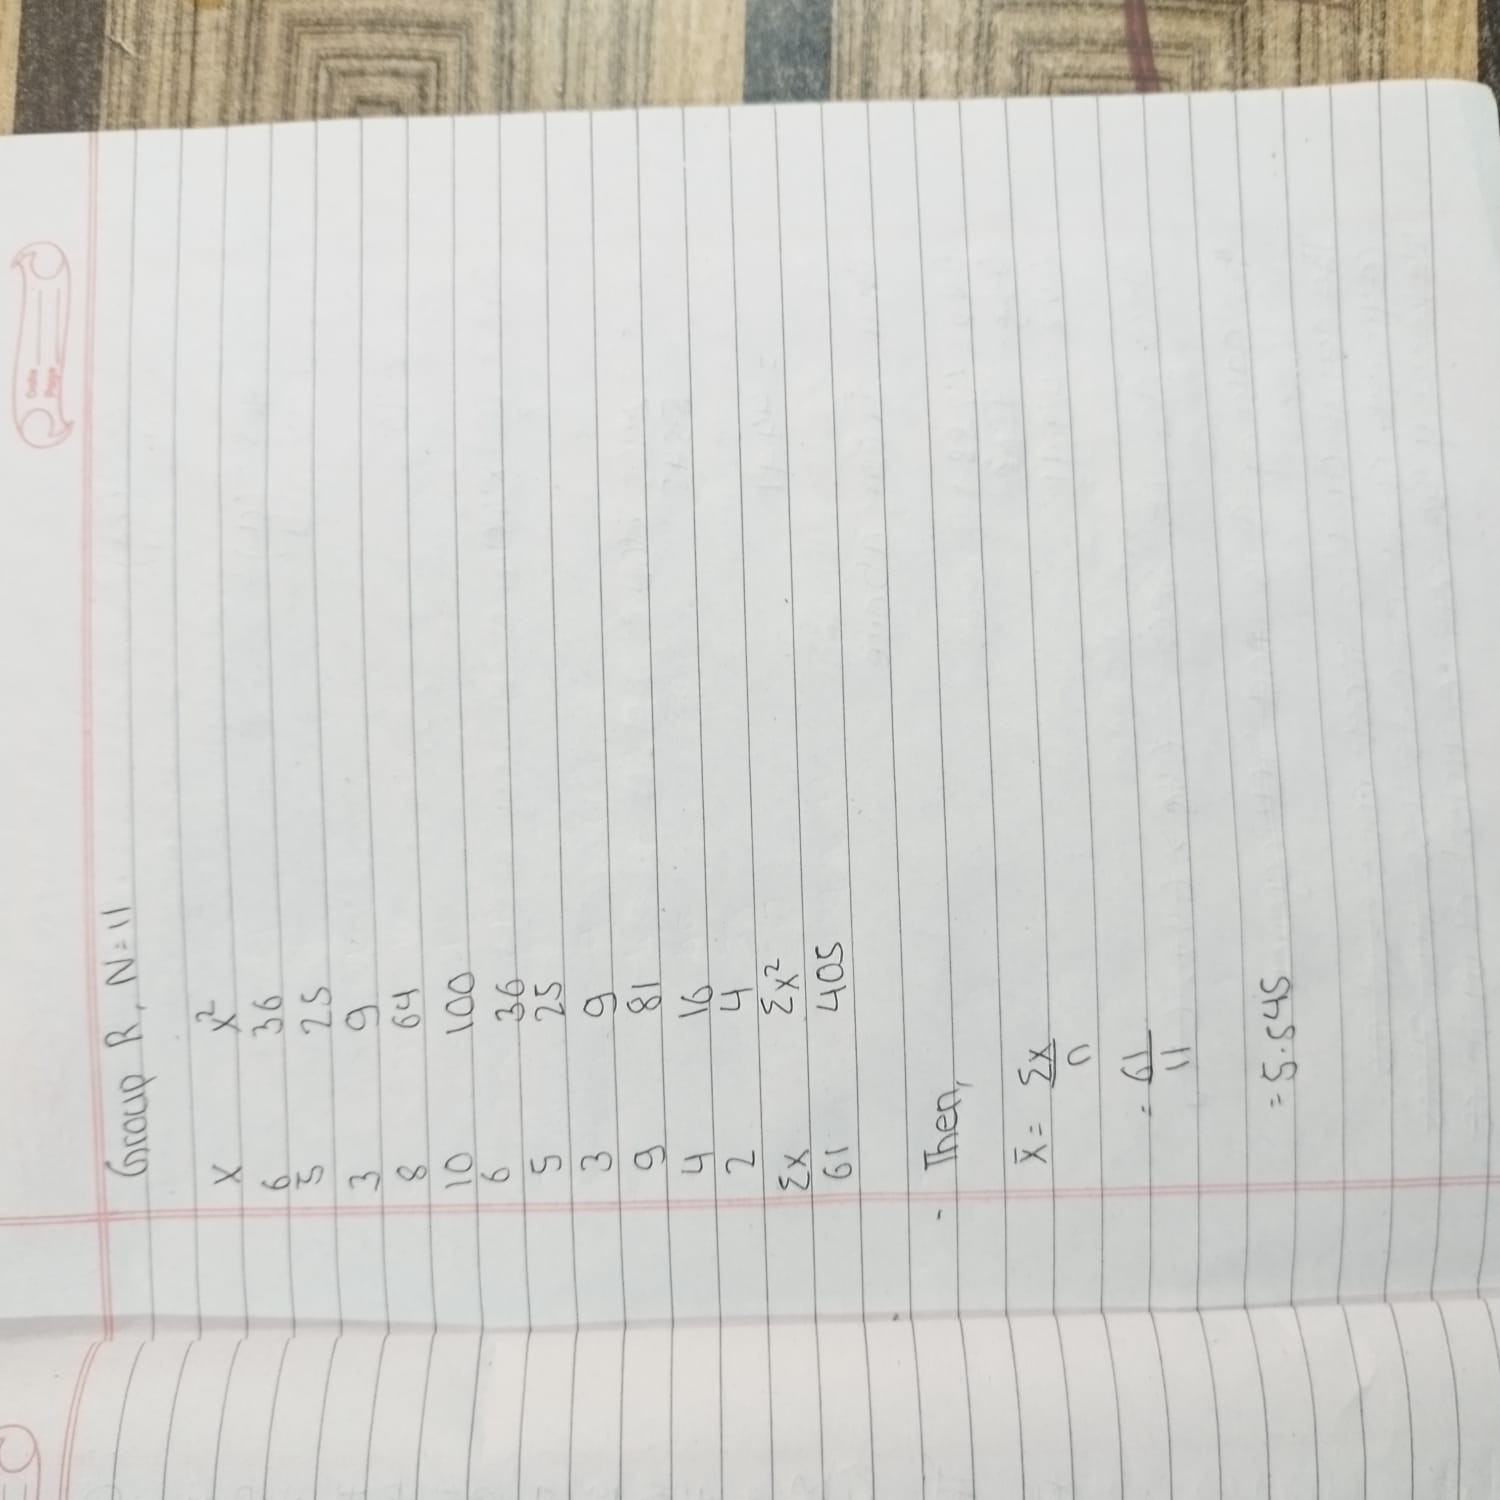 Date
Page
Group R, N=11
X X²
6 36
5 25
3 9
8 64
10 100
6 36
5 25
3 9
9 81
4 16
2 4
Σx Σx²
61 405
- Then,
x̄ = Σx
n
= 61
11
= 5.545